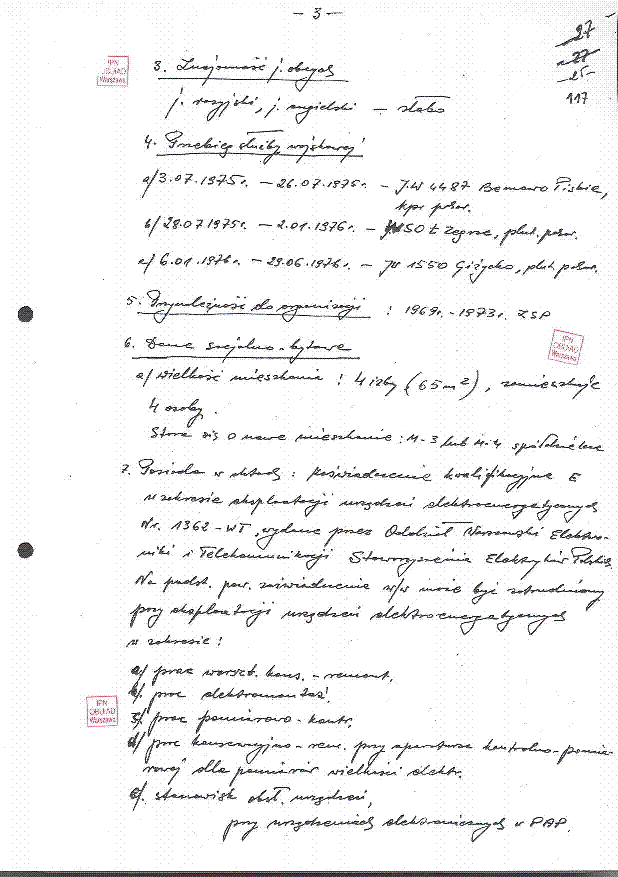 — 3 —
27
27
25
117
IPN
OBUiAD
Warszawa
3. Znajomość j. obcych
j. rosyjski, j. angielski — słabo
4. Przebieg służby wojskowej
a/ 3.07.1975r. — 26.07.1975r. — J.W 4487 Bemowo Piskie,
kpr. pchor.
b/ 28.07.1975r. — 2.01.1976r. — Zegrze, plut. pchor.
c/ 6.01.1976r. — 29.06.1976r. — JW 1550 Giżycko, plut. pchor.
5. Przynależność do organizacji : 1969r. - 1973r. ZSP
IPN
OBUiAD
Warszawa
6. Dane socjalno-bytowe
a/ wielkość mieszkania : 4 izby (65 m²), zamieszkuje
4 osoby.
Stara się o nowe mieszkanie : M-3 lub M-4 spółdzielcze
7. Posiada w aktach : Poświadczenie kwalifikacyjne E
w zakresie eksploatacji urządzeń elektroenergetycznych
Nr. 1362-WT, wydane przez Oddział Warszawski Elektro-
niki i Telekomunikacji Stowarzyszenia Elektryków Polskich.
Na podst. pow. zaświadczenia w/w może być zatrudniony
przy eksploatacji urządzeń elektroenergetycznych
w zakresie :
a/ prac warszt. kons. - remont.
b/. prac elektromontaż.
IPN
OBUiAD
Warszawa
c/. prac pomiarowo-kontr.
d/ prac konserwacyjno-rem. przy aparaturze kontrolno-pomia-
rowej dla pomiarów wielkości elektr.
e/. stanowisk obsł. urządzeń,
przy urządzeniach elektronicznych w PAP.